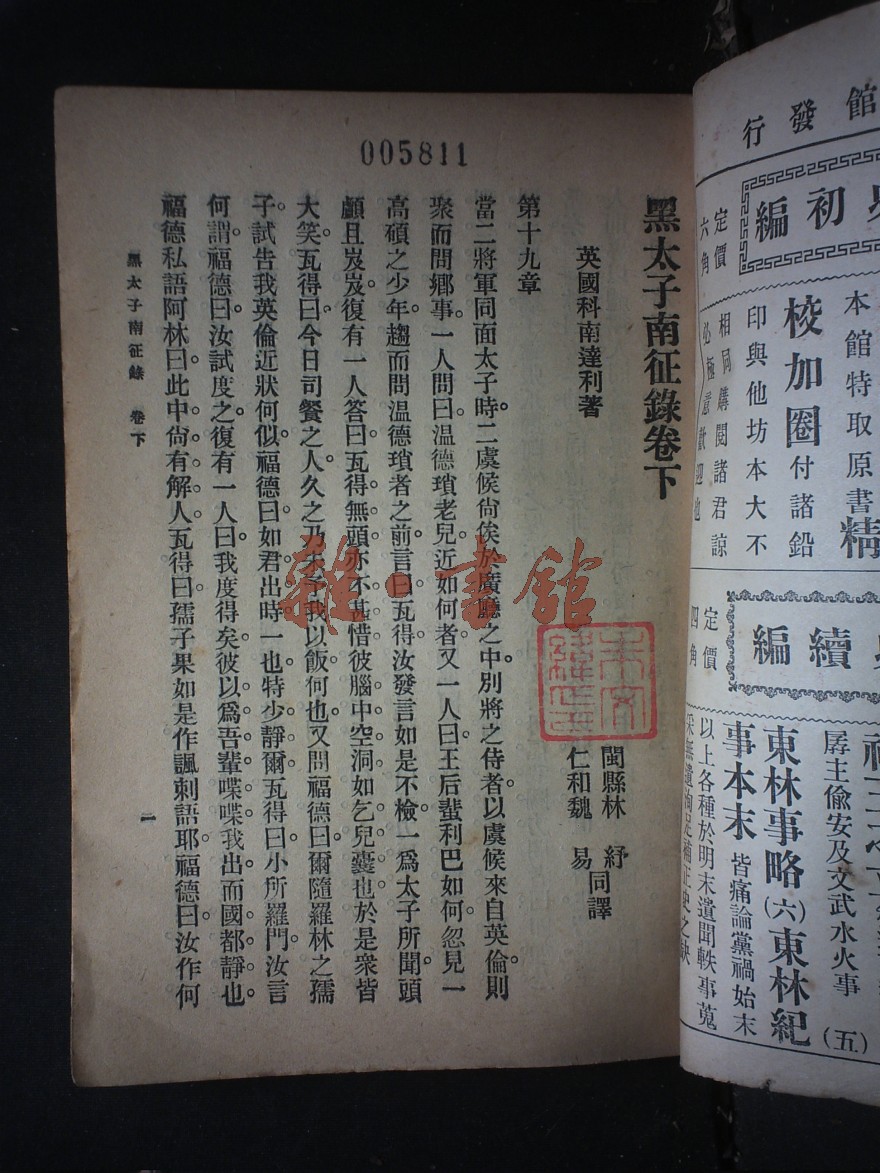 005811
黑太子南征錄卷下
英國科南達利著
閩縣林 紓
仁和魏 易
同譯
第十九章
當二將軍同面太子時。二虞候尙俟於廣廳之中。別將之侍者。以虞候來自英倫。則
聚而問鄕事。一人問曰。温德瑣老兒近如何者。又一人曰。王后蜚利巴如何。忽見一
高碩之少年。趨而問温德瑣者之前。言曰。瓦得。汝發言如是不檢。一爲太子所聞。頭
顱且岌岌。復有一人答曰。瓦得無頭。亦不甚惜。彼腦中空洞如乞兒囊也。於是衆皆
大笑。瓦得曰。今日司餐之人。久之乃未予我以飯。何也。又問福德曰。爾隨羅林之孺
子。試告我英倫近狀何似。福德曰。如君出時一也。特少靜爾。瓦得曰。小所羅門。汝言
何謂。福德曰。汝試度之。復有一人曰。我度得矣。彼以爲吾輩喋喋。我出而國都靜也。
福德私語阿林曰。此中尙有解人。瓦得曰。孺子果如是作諷刺語耶。福德曰。汝作何
黑太子南征錄 卷下
一
雜·書館
館發行
初編
定價
六角
本館特取原書精
校加圈付諸鉛
印與他坊本大不
相同購閱諸君諒
必極意歡迎也
續編
定價
四角
孱主偷安及文武水火事
(五)
東林事略(六)東林紀
事本末
皆痛論黨禍始末
以上各種於明末遺聞軼事蒐